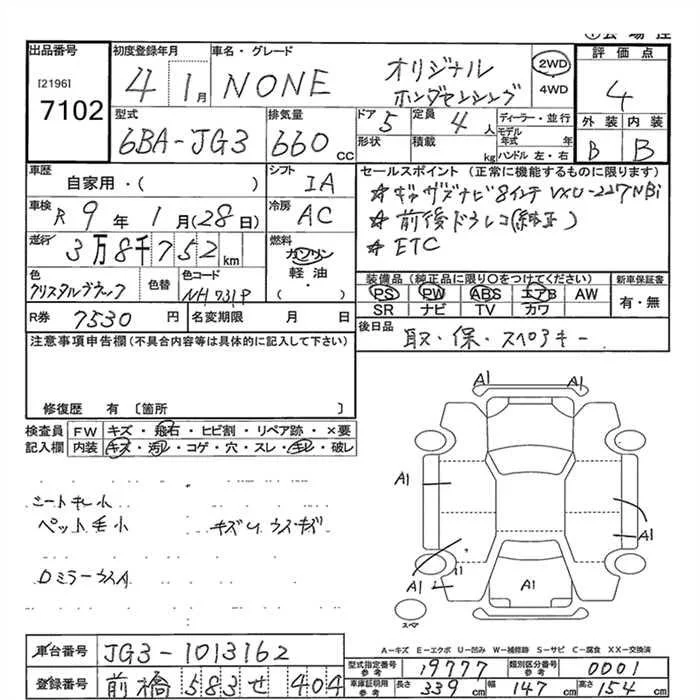 出品番号
[2196]
7102
初度登録年月
4 1月
車名・グレード
NONE オリジナル
ホンダセンシング
2WD
4WD
評価点
4
型式
6BA-JG3
排気量
660 CC
ドア 5
定員 4 人
形状
積載 kg
ディーラー・並行
モデル年式 年
ハンドル 左・右
外装 内装
B B
車歴
自家用・( )
シフト
IA
車検 R 9年 1月(28日)
冷房
AC
走行
3万8千752 km
燃料
ガソリン
軽油・
( )
色
クリスタルブラック
色替
色コード
NH731P
R券 7530 円
名変期限 月 日
セールスポイント (正常に機能するものに限ります)
☆ギャザズナビ8インチ VXU-227NBi
☆前後ドラレコ(純正)
☆ETC
装備品 (純正品に限り○をつけてください)
PS PW ABS エアB AW
SR ナビ TV カワ
新車保証書
有・無
後日品
取・保・スペアキー
注意事項申告欄(不具合内容等は具体的に記入して下さい)
修復歴 有 〔箇所 〕
検査員記入欄
FW キズ・飛石・ヒビ割・リペア跡・×要
内装 キズ・汚れ・コゲ・穴・スレ・キレ・破レ
シートキレ小
ペット毛小 キズU ウスキズ
DミラーウスA
A1 A1
A1
A1
A1
A1
スペア
A-キズ E-エクボ U-凹み W-補修跡 S-サビ C-腐食 XX-交換済
車台番号 JG3-1013162
登録番号 前橋 583 せ 404
型式指定番号 参考 19777
類別区分番号 参考 0001
車庫証明用 参考 長さ 339 cm 幅 147 cm 高さ 154 cm